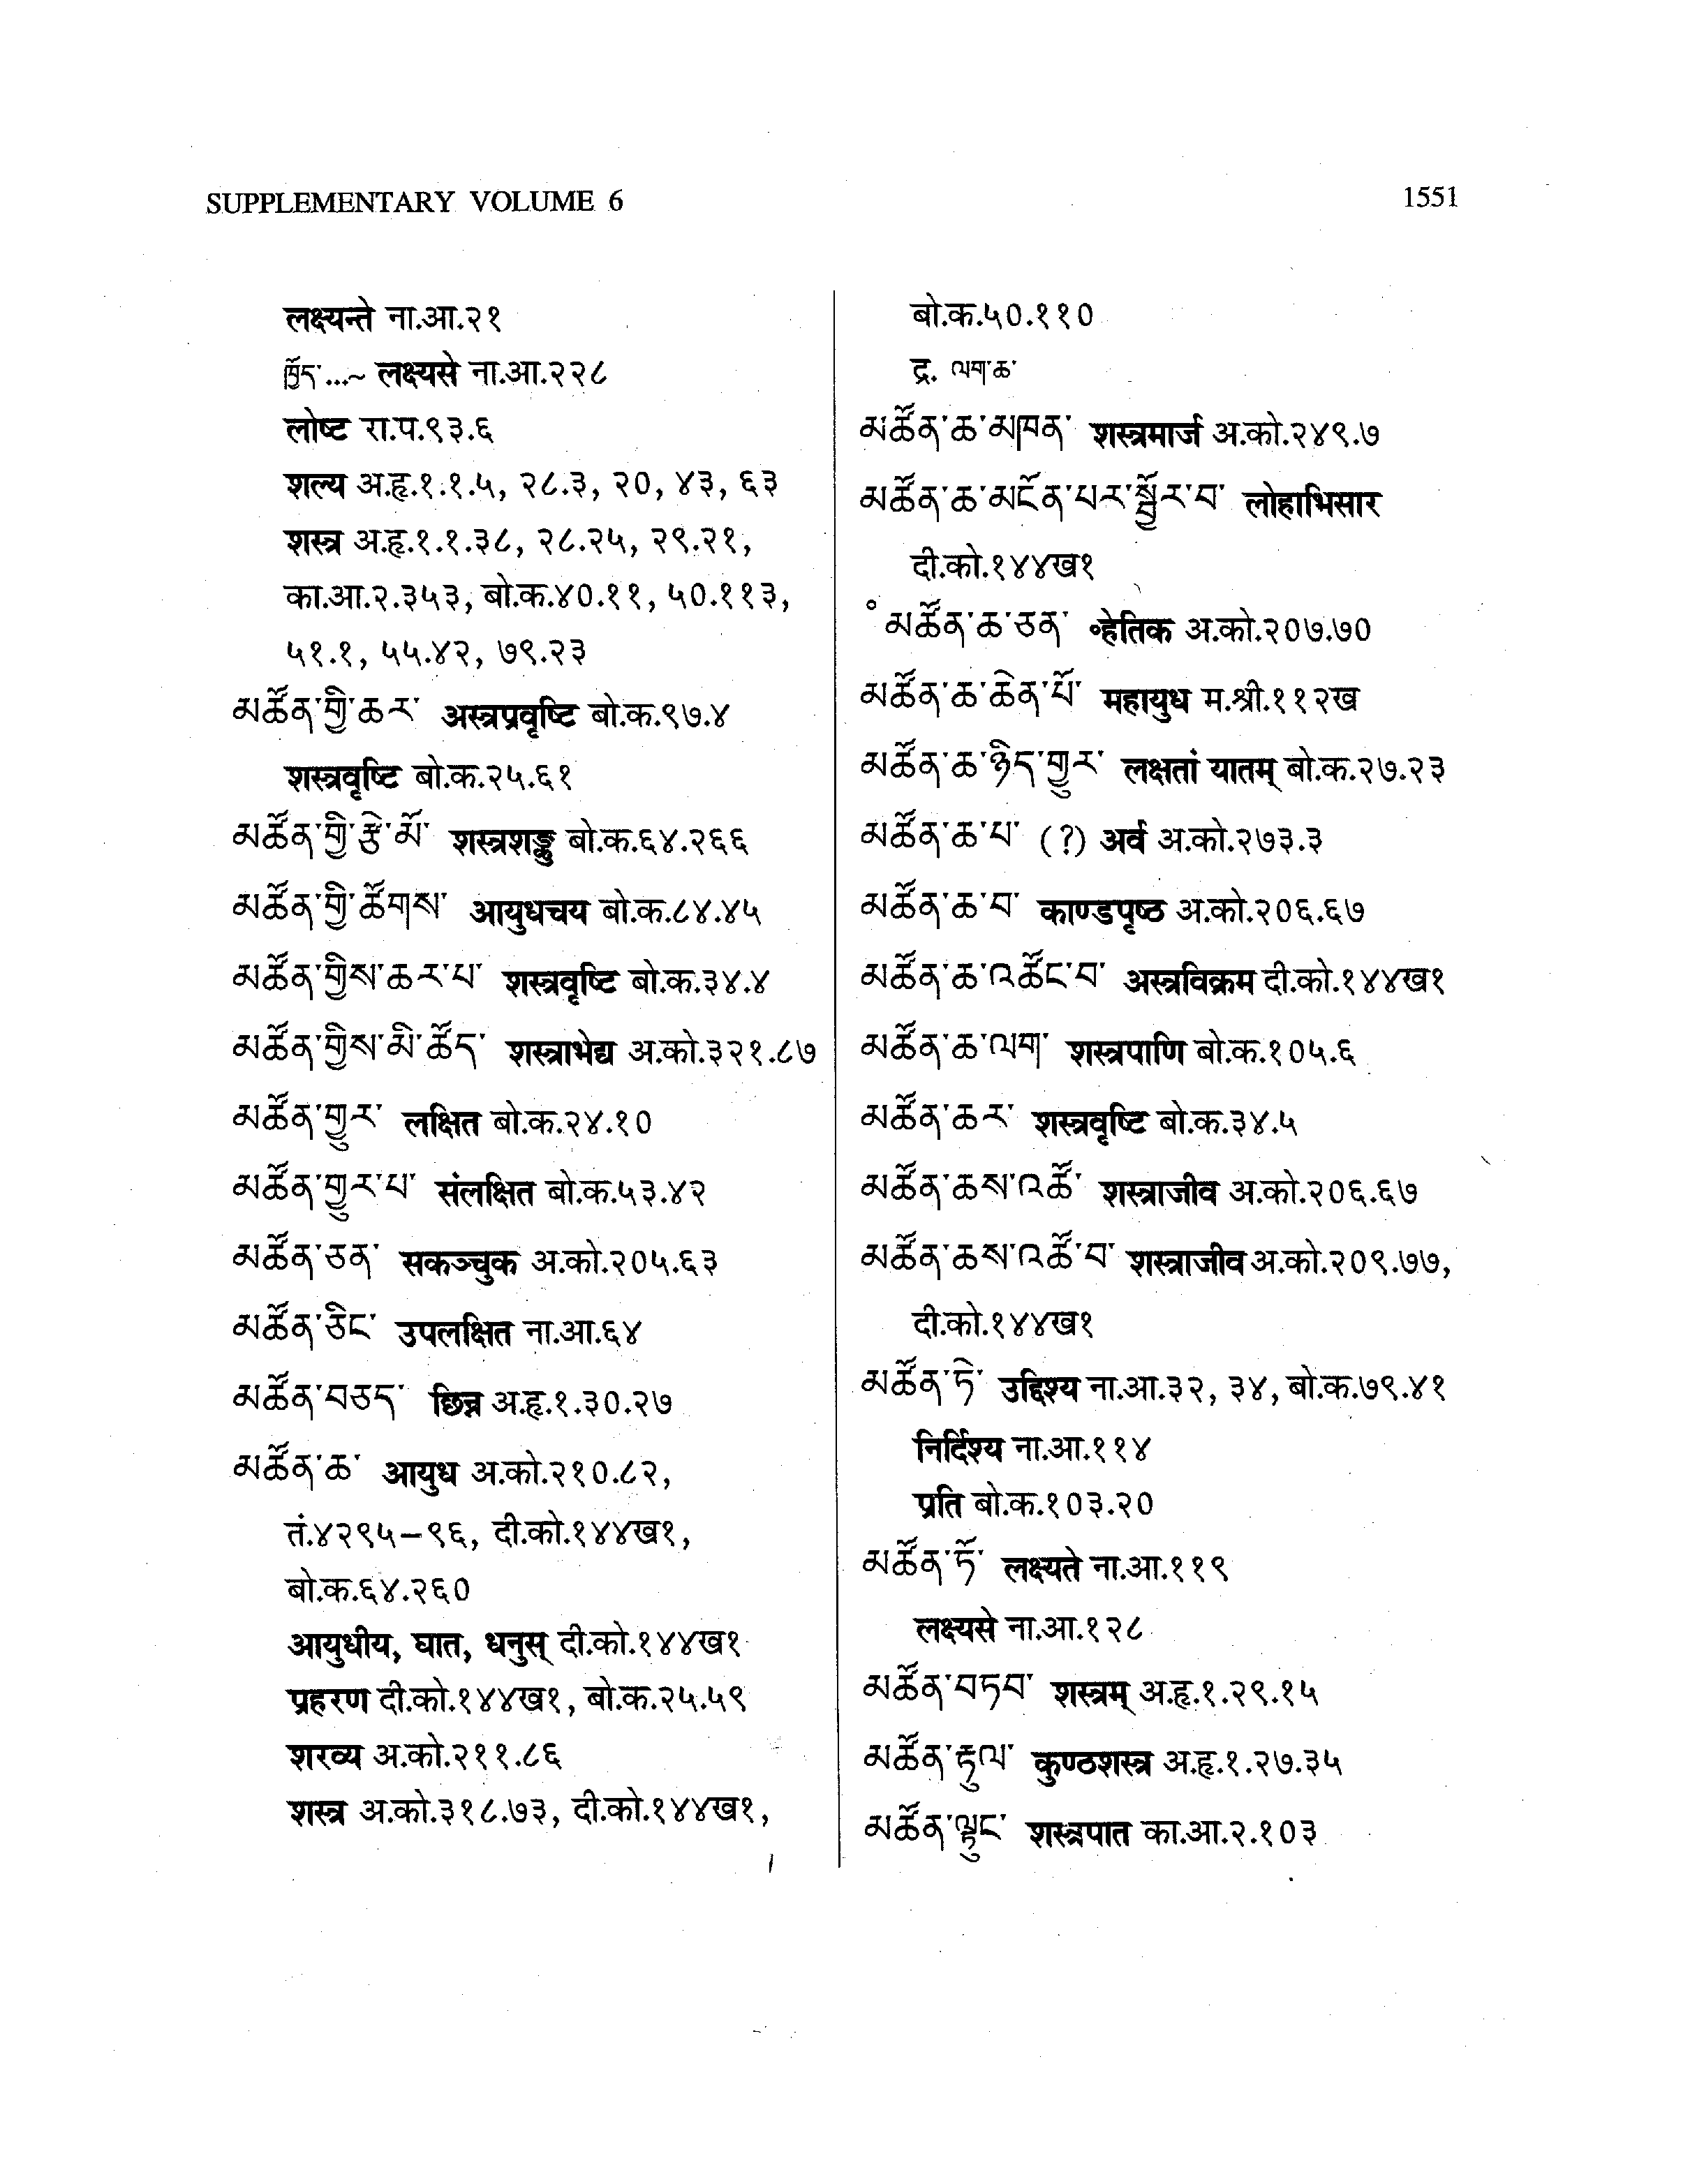 SUPPLEMENTARY VOLUME 6
1551
लक्ष्यन्ते ना.आ.२१
ཁྱོད་...~ लक्ष्यसे ना.आ.२२८
लोष्ट रा.प.९३.६
शल्य अ.हृ.१.१.५, २८.३, २०, ४३, ६३
शस्त्र अ.हृ.१.१.३८, २८.२५, २९.२१,
का.आ.२.३५३, बो.क.४०.११, ५०.११३,
५१.१, ५५.४२, ७९.२३
མཚོན་གྱི་ཆར་ अस्त्रप्रवृष्टि बो.क.९७.४
शस्त्रवृष्टि बो.क.२५.६१
མཚོན་གྱི་རྩེ་མོ་ शस्त्रशङ्कु बो.क.६४.२६६
མཚོན་གྱི་ཚོགས་ आयुधचय बो.क.८४.४५
མཚོན་གྱིས་ཆར་པ་ शस्त्रवृष्टि बो.क.३४.४
མཚོན་གྱིས་མི་ཚོད་ शस्त्राभेद्य अ.को.३२१.८७
མཚོན་གྱུར་ लक्षित बो.क.२४.१०
མཚོན་གྱུར་པ་ संलक्षित बो.क.५३.४२
མཚོན་ཅན་ सकञ्चुक अ.को.२०५.६३
མཚོན་ཅིང་ उपलक्षित ना.आ.६४
མཚོན་བཅད་ छिन्न अ.हृ.१.३०.२७
མཚོན་ཆ་ आयुध अ.को.२१०.८२,
तं.४२९५-९६, दी.को.१४४ख१,
बो.क.६४.२६०
आयुधीय, घात, धनुस् दी.को.१४४ख१
प्रहरण दी.को.१४४ख१, बो.क.२५.५९
शरव्य अ.को.२११.८६
शस्त्र अ.को.३१८.७३, दी.को.१४४ख१,
बो.क.५०.११०
द्र. ལག་ཆ་
མཚོན་ཆ་མཁན་ शस्त्रमार्ज अ.को.२४९.७
མཚོན་ཆ་མངོན་པར་སྦྱོར་བ་ लोहाभिसार
दी.को.१४४ख१
°མཚོན་ཆ་ཅན་ ॰हेतिक अ.को.२०७.७०
མཚོན་ཆ་ཆེན་པོ་ महायुध म.श्री.११२ख
མཚོན་ཆ་ཉིད་གྱུར་ लक्षतां यातम् बो.क.२७.२३
མཚོན་ཆ་པ་ (?) अर्व अ.को.२७३.३
མཚོན་ཆ་བ་ काण्डपृष्ठ अ.को.२०६.६७
མཚོན་ཆ་འཚོང་བ་ अस्त्रविक्रम दी.को.१४४ख१
མཚོན་ཆ་ལག་ शस्त्रपाणि बो.क.१०५.६
མཚོན་ཆར་ शस्त्रवृष्टि बो.क.३४.५
མཚོན་ཆས་འཚོ་ शस्त्राजीव अ.को.२०६.६७
མཚོན་ཆས་འཚོ་བ་ शस्त्राजीव अ.को.२०९.७७,
दी.को.१४४ख१
མཚོན་ཏེ་ उद्दिश्य ना.आ.३२, ३४, बो.क.७९.४१
निर्दिश्य ना.आ.११४
प्रति बो.क.१०३.२०
མཚོན་ཏོ་ लक्ष्यते ना.आ.११९
लक्ष्यसे ना.आ.१२८
མཚོན་བཏབ་ शस्त्रम् अ.हृ.१.२९.१५
མཚོན་རྟུལ་ कुण्ठशस्त्र अ.हृ.१.२७.३५
མཚོན་ལྟུང་ शस्त्रपात का.आ.२.१०३